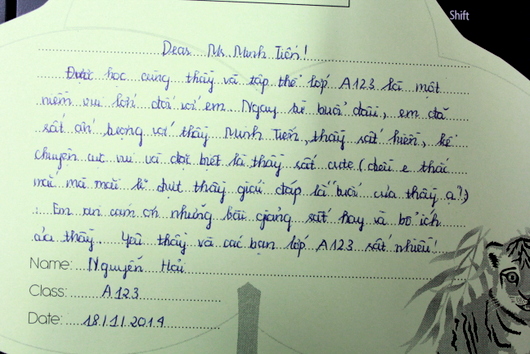 Shift
Dear Mr. Minh Tiến!
Được học cùng thầy và tập thể lớp A123 là một
niềm vui lớn đối với em. Ngay từ buổi đầu, em đã
rất ấn tượng với thầy Minh Tiến, thầy rất hiền, kể
chuyện cực vui và đặc biệt là thầy rất cute (điều e thắc
mắc mà mãi k được thầy giải đáp là tuổi của thầy ạ?)
: Em xin cảm ơn những bài giảng rất hay và bổ ích
của thầy. Yêu thầy và các bạn lớp A123 rất nhiều!
Name: Nguyễn Hải
Class: A123
Date: 18/1/2014